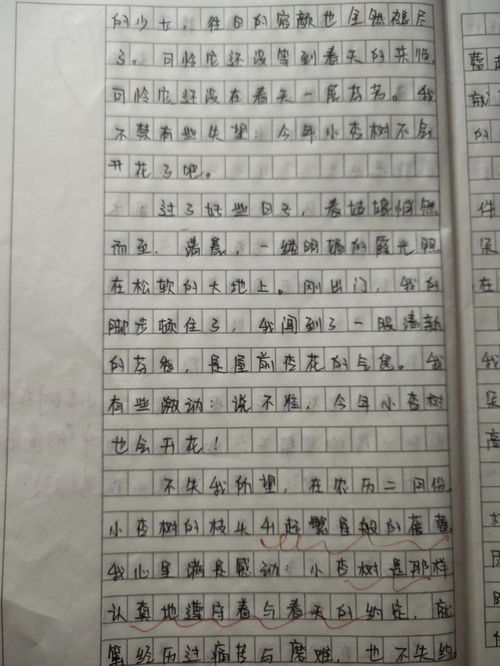 的少女，往日的容颜也全然褪尽
了。可怜它还没等到春天的来临，
可怜它还没在春天一展芳若。我
不禁有些失望：今年小杏树不会
开花了吧。
过了好些日子，春姑娘悄然
而至。清晨，一缕明媚的霞光照
在松软的大地上。刚出门，我的
脚步顿住了，我闻到了一股清新
的芳香，是屋前杏花的气息。我
有些激动：说不准，今年小杏树
也会开花！
不失我所望，在农历二月份，
小杏树的枝头升起繁星般的蓓蕾，
我心里满是感动：小杏树是那样
认真地遵守着与春天的约定，就
算经历过痛苦与磨难，也不失约。